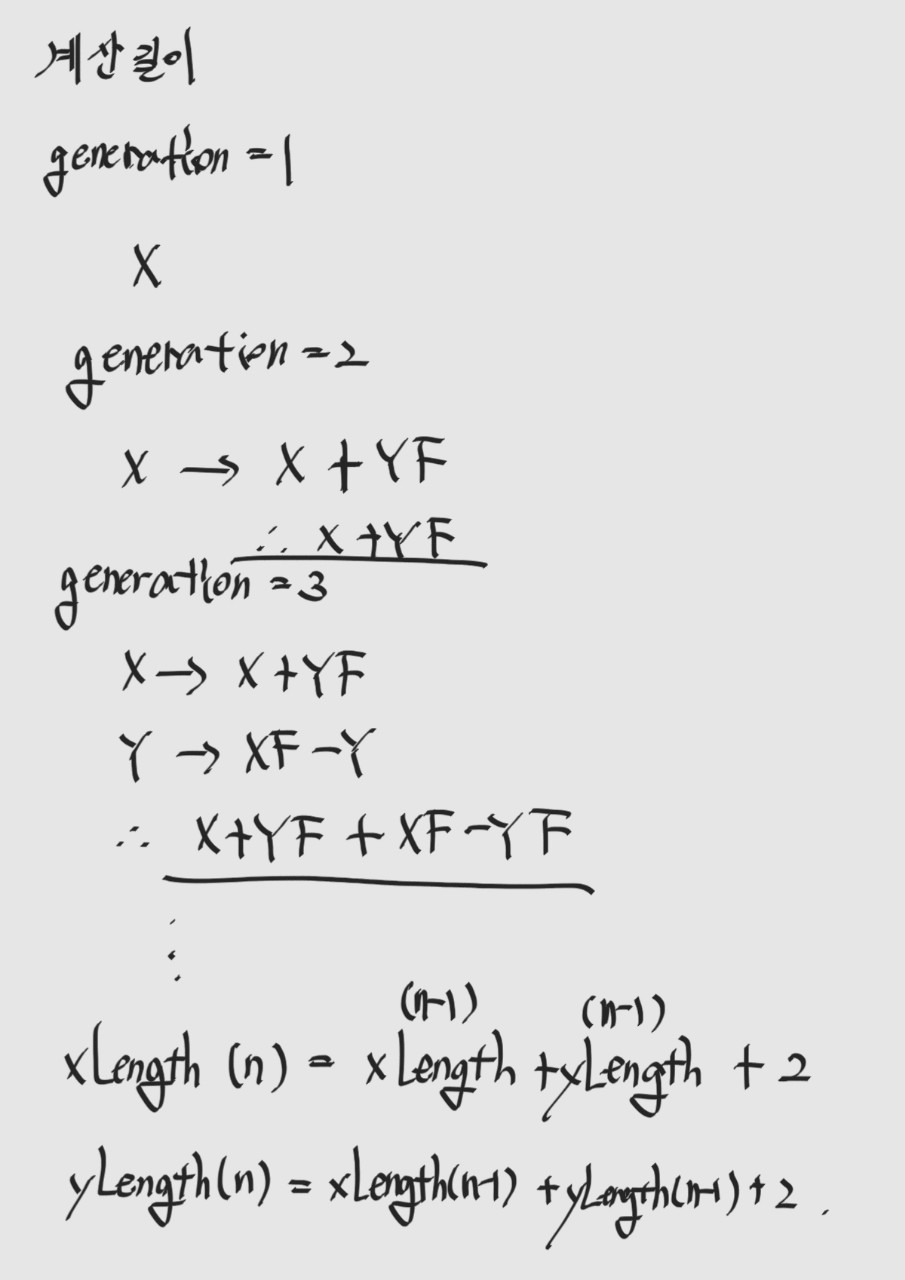 계산 길이
generation = 1
X
generation = 2
X → X + YF
∴ X + YF
generation = 3
X → X + YF
Y → XF - Y
∴ X + YF + XF - YF
⋮
(n-1) (n-1)
xLength (n) = xLength + yLength + 2
yLength(n) = xLength(n-1) + yLength(n-1) + 2 .